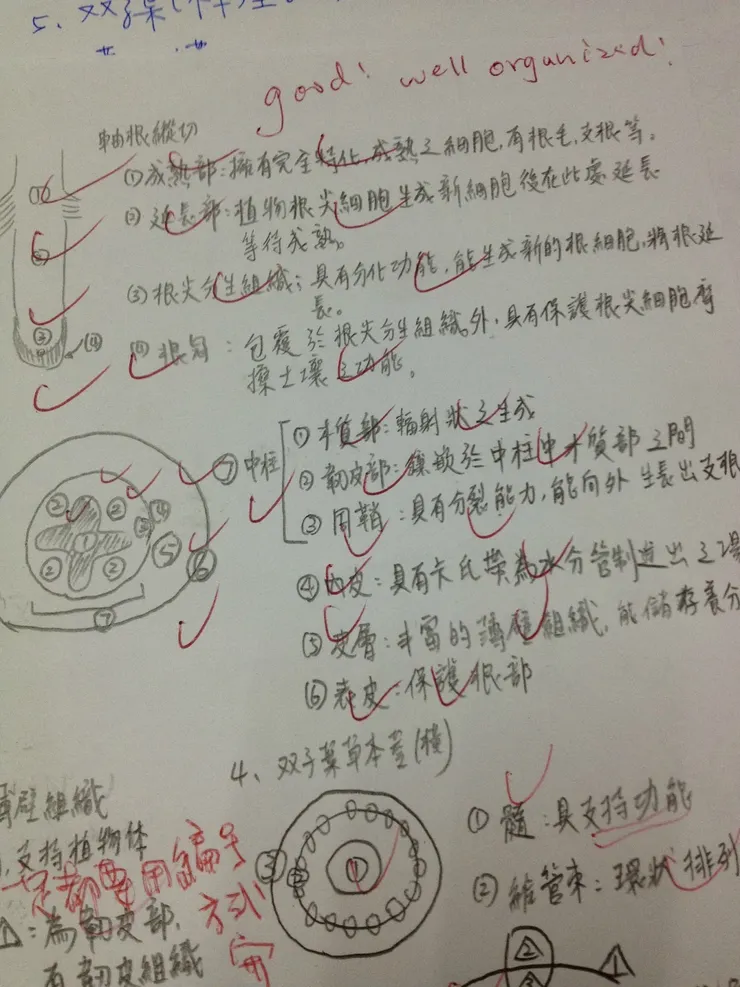 5、双子葉
good! well organized!
軸根縱切
①成熟部:擁有完全特化,成熟之細胞,有根毛,支根等。
②延長部:植物根尖細胞生成新細胞後在此處延長
等待成熟。
③根尖分生組織:具有分化功能,能生成新的根細胞,將根延
長。
④根冠:包覆於根尖分生組織外,具有保護根尖細胞磨
擦土壤之功能。
① ② ③ ④
⑦中柱
①木質部:輻射狀之生成
②韌皮部:鑲嵌於中柱中木質部之間
③周鞘:具有分裂能力,能向外生長出支根
④內皮:具有卡氏帶為水分管制進出之場
⑤皮層:丰富的薄壁組織,能儲存養分
⑥表皮:保護根部
② ② ① ② ② ③ ④ ⑤ ⑥ ⑦
4、双子葉草本莖(橫)
薄壁組織
支持植物體
一定都要用編号
方式
寫
1:為韌皮部,
有韌皮組織
① ② ③
①髓:具支持功能
②維管束:環狀排列
2 1
3